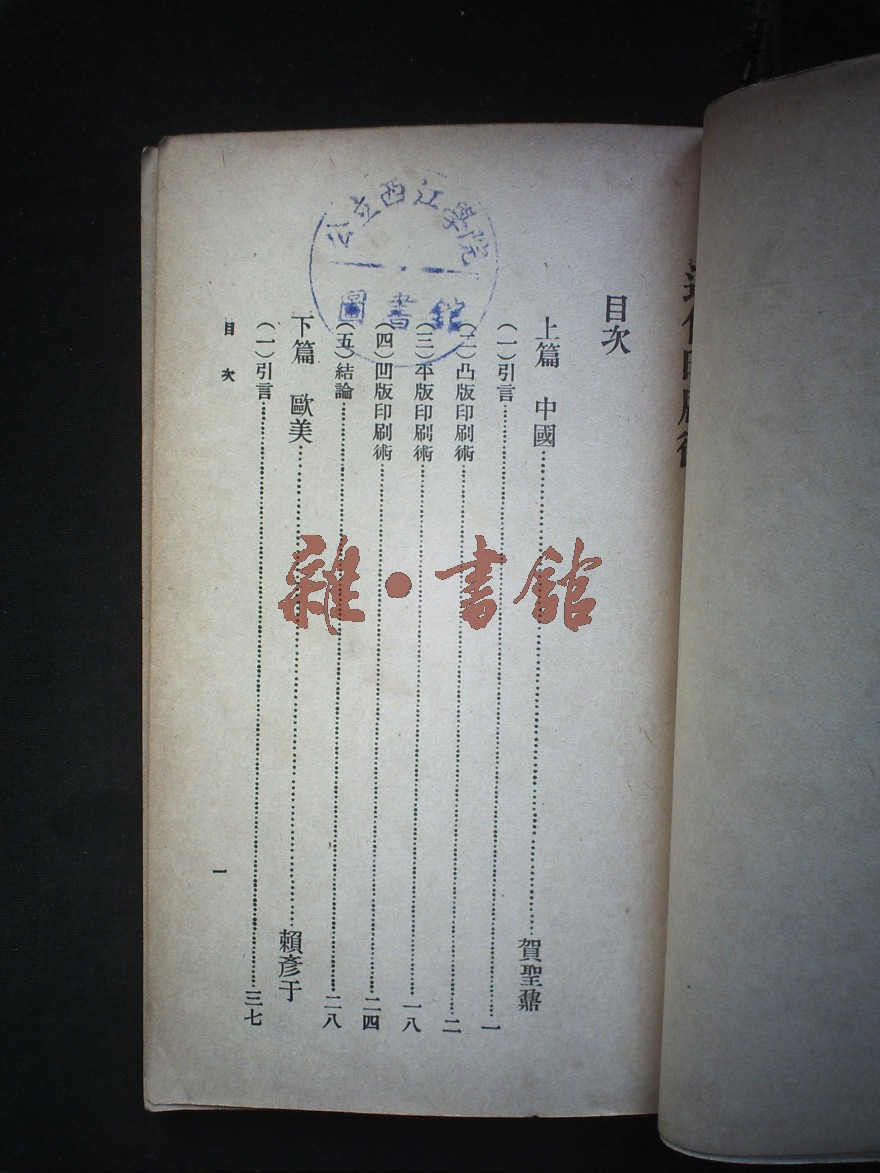 近代印刷術
目次
上篇 中國……賀聖鼐
（一）引言……一
（二）凸版印刷術……二
（三）平版印刷術……一八
（四）凹版印刷術……二四
（五）結論……二八
下篇 歐美……賴彥于
（一）引言……三七
目次 一
公立西江學院
圖書館
雜·書館